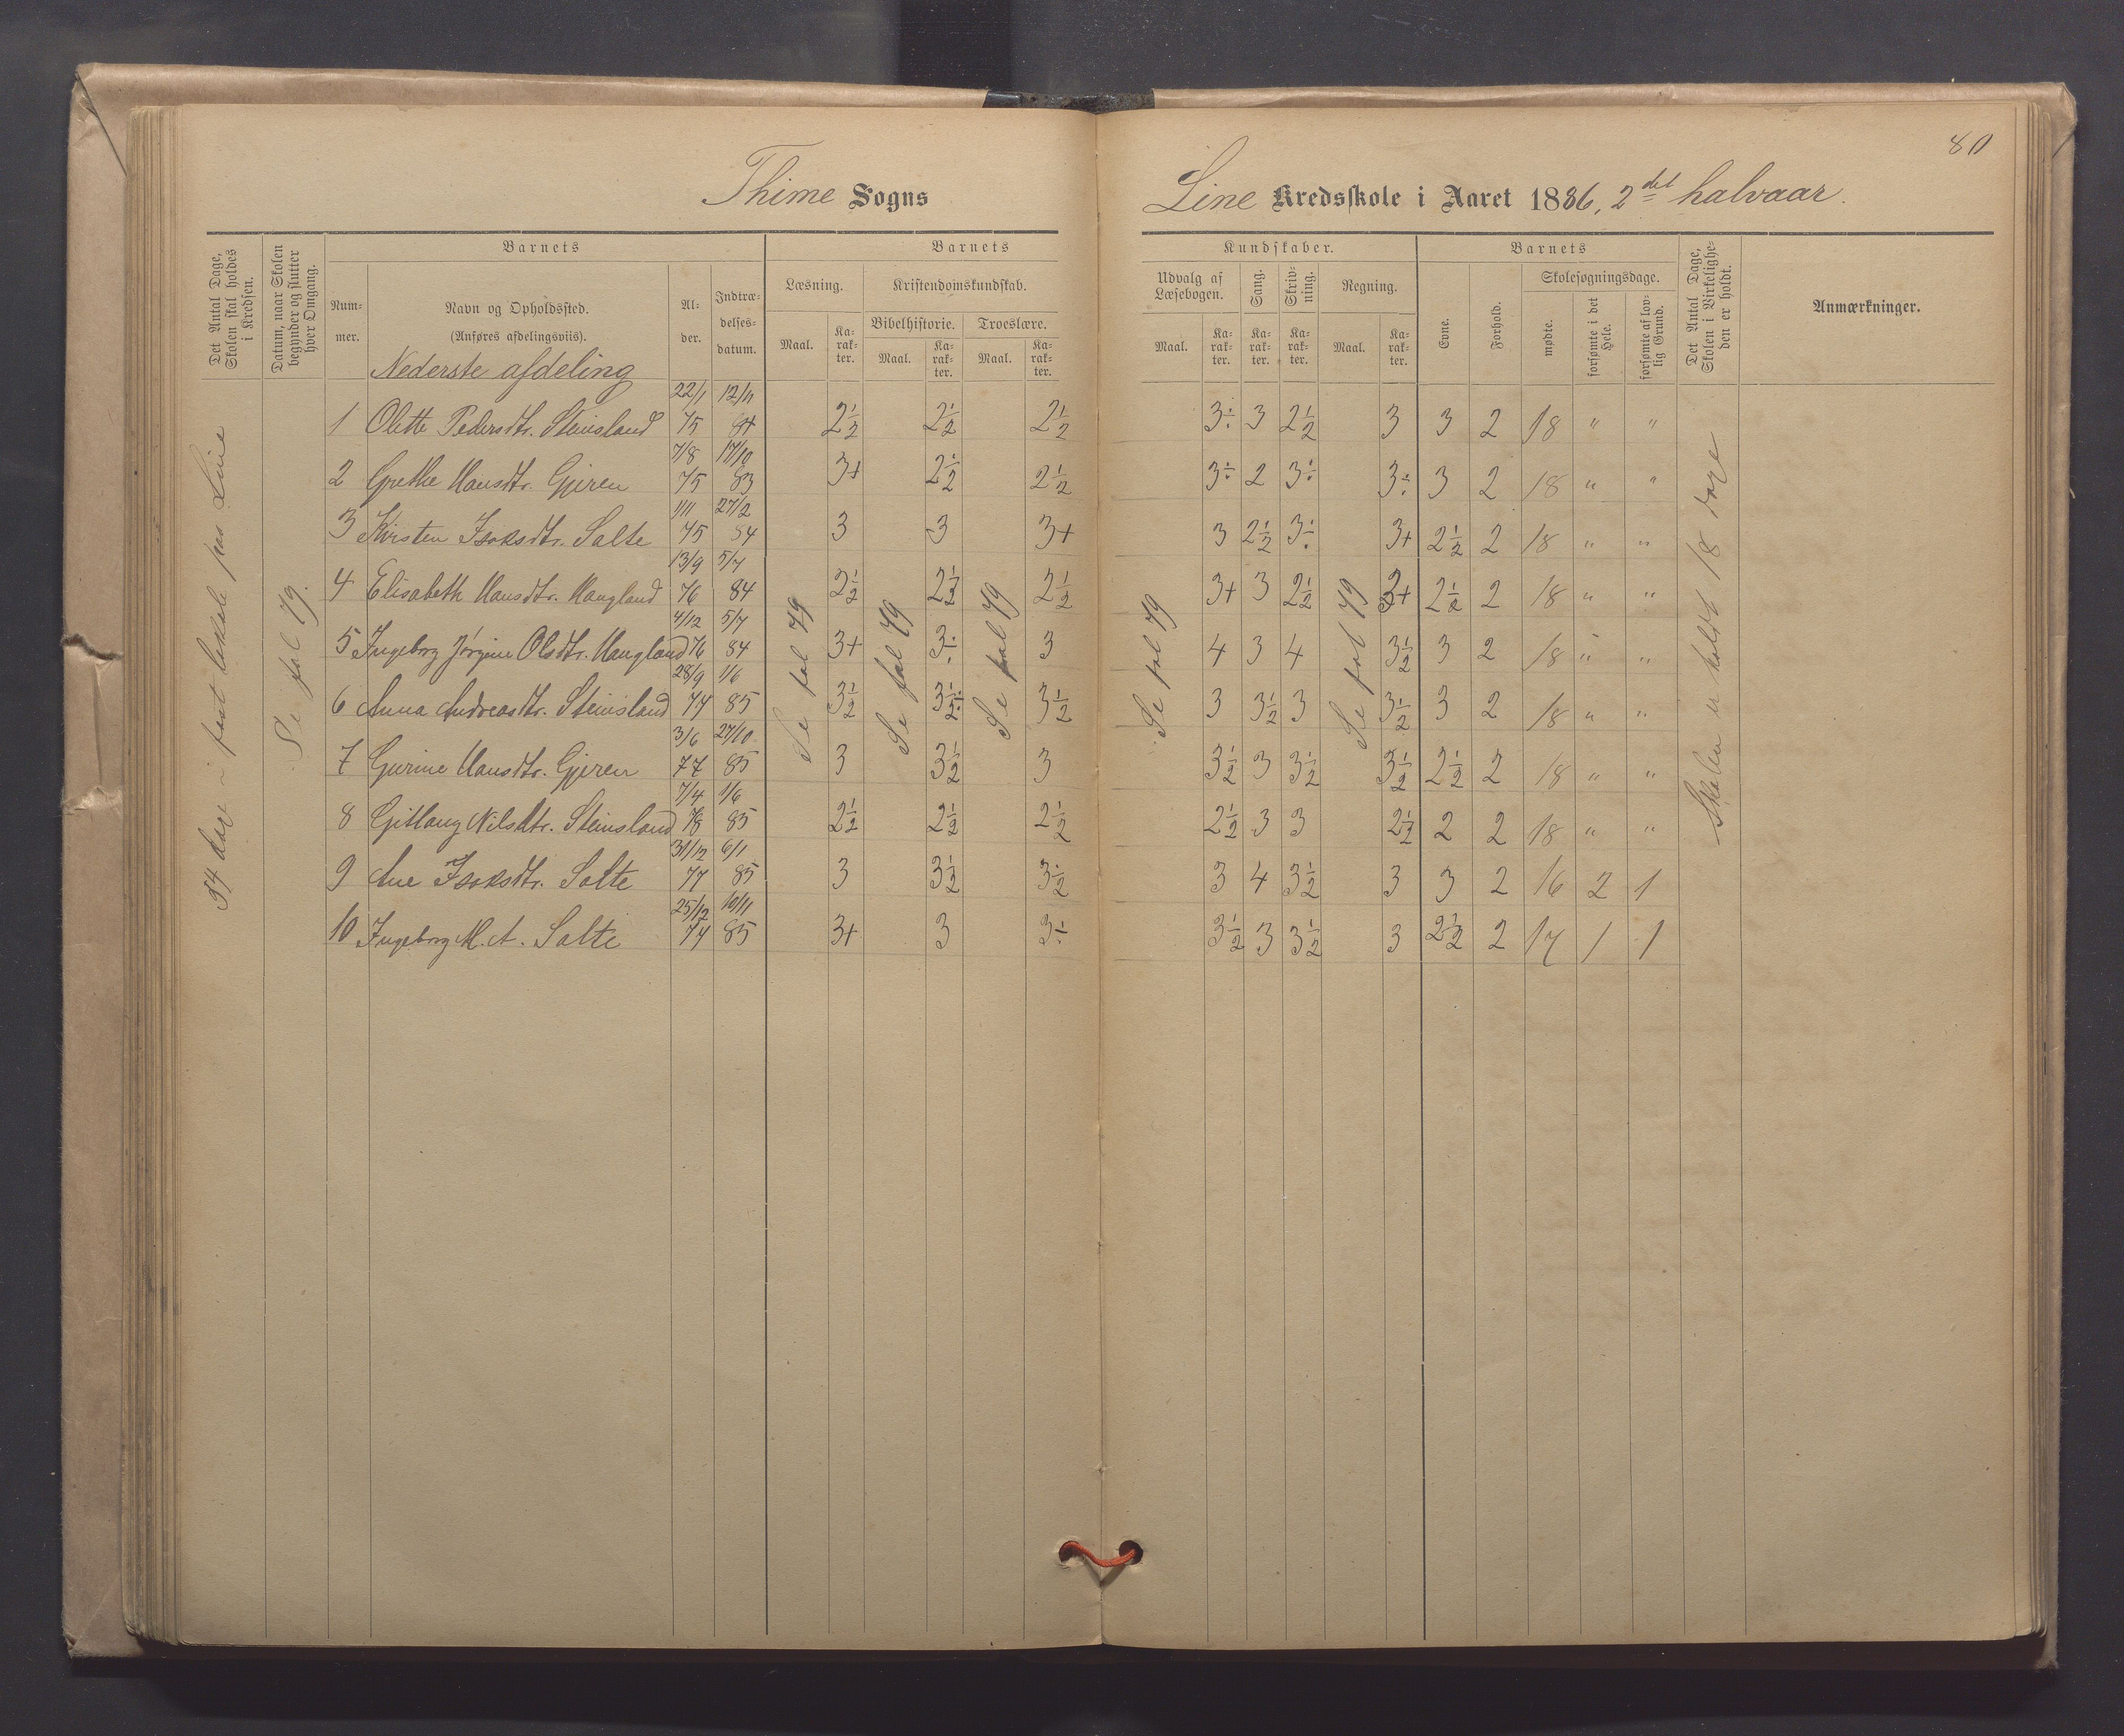 80
Thime Sogns
Line Kredsskole i Aaret 1886, 2det halvaar.
Det Antal Dage, Skolen skal holdes i Kredsen.
Datum, naar Skolen begynder og slutter hver Omgang.
Barnets
Nummer.
Navn og Opholdssted.
(Anføres afdelingsviis).
Alder.
Indtrædelsesdatum.
Barnets
Læsning.
Maal.
Karakter.
Kristendomskundskab.
Bibelhistorie.
Maal.
Karakter.
Troeslære.
Maal.
Karakter.
Kundskaber.
Udvalg af Læsebogen.
Maal.
Karakter.
Sang.
Karakter.
Skrivning.
Karakter.
Regning.
Maal.
Karakter.
Barnets
Evne.
Forhold.
Skolesøgningsdage.
mødte.
forsømte i det Hele.
forsømte af lovlig Grund.
Det Antal Dage, Skolen i Virkeligheden er holdt.
Anmærkninger.
Nederste afdeling
dage i fast lokale paa Line
Se fol 79.
Se fol 79
Se fol 79
Se fol 79
Se fol 79
Se fol 79
Skolen er holdt 18 dage
1 Olette Pedersdtr. Steinsland 22/1 75 12/11 84 2½ 2½ 2½ 3÷ 3 2½ 3 3 2 18 " "
2 Grethe Hansdtr. Gjeren 7/8 75 17/10 83 3+ 2½ 2½ 3÷ 2 3÷ 3÷ 3 2 18 " "
3 Kirsten Isaksdtr. Salte 1/11 75 27/2 84 3 3 3+ 3 2½ 3÷ 3+ 2½ 2 18 " "
4 Elisabeth Hansdtr. Haugland 13/9 76 5/7 84 2½ 2½ 2½ 3+ 3 2½ 3+ 2½ 2 18 " "
5 Ingeborg Jørgine Olsdtr. Haugland 4/12 76 5/7 84 3+ 3÷ 3 4 3 4 3½ 3 2 18 " "
6 Anna Andreasdtr. Steinsland 28/9 77 1/6 85 3½ 3½÷ 3½ 3 3½ 3 3½ 3 2 18 " "
7 Gurine Hansdtr. Gjeren 3/6 77 27/10 85 3 3½ 3 3½ 3 3½ 3½ 2½ 2 18 " "
8 Gitlaug Nilsdtr. Steinsland 7/4 78 1/6 85 2½ 2½ 2½ 2½ 3 3 2½ 2 2 18 " "
9 Ane Isaksdtr. Salte 31/12 77 6/1 85 3 3½ 3½ 3 4 3½ 3 3 2 16 2 1
10 Ingeborg M. A. Salte 25/12 77 10/11 85 3+ 3 3÷ 3½ 3 3½ 3 2½ 2 17 1 1